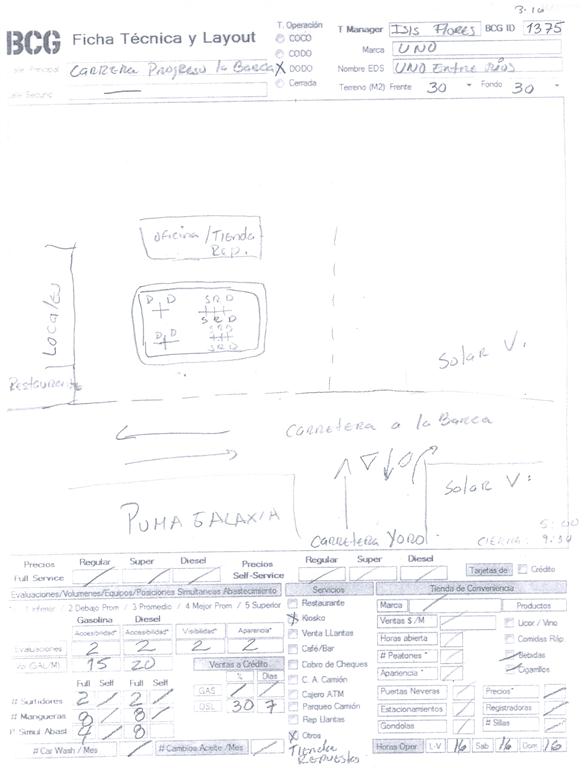 3-16
BCG Ficha Técnica y Layout
T. Operación
COCO
CODO
X DODO
Cerrada
T Manager ISIS FLORES BCG ID 1375
Marca UNO
Nombre EDS UNO Entre Ríos
Terreno (M2) Frente 30 - Fondo 30 -
CARRERA PROGRESO la BARCA
oficina/Tienda
Rep.
Locales
D D S R D
S R D
D D S R D
S R D
Restaurante
Solar V.
CARRETERA a la BARCA
PUMA GALAXIA
Solar V:
CARRETERA YORO
5:00
CIERRA: 9:30
Precios Regular Super Diesel Precios Regular Super Diesel
Full Service Self-Service
Tarjetas de Crédito
Evaluaciones/Volumenes/Equipos/Posiciones Simultaneas Abastecimiento
1 Inferior / 2 Debajo Prom / 3 Promedio / 4 Mejor Prom / 5 Superior
Gasolina Diesel
Accesibilidad* Accesibilidad* Visibilidad* Apariencia*
Evaluaciones 2 2 2 2
Vol (GAL/M) 15 20
Ventas a Crédito
% Días
GAS
DSL 30 7
Full Self Full Self
# Surtidores 2 2
# Mangueras 8 8
# Simul Abast 4 8
# Car Wash / Mes # Cambios Aceite /Mes
Servicios
Restaurante
X Kiosko
Venta LLantas
Café/Bar
Cobro de Cheques
C. A. Camión
Cajero ATM
Parqueo Camión
Rep Llantas
X Otros
Tienda
Repuestos
Tienda de Conveniencia
Marca Productos
Ventas $ /M
Licor / Vino
Horas abierta
Comidas Ráp
# Peatones *
Bebidas
Apariencia *
Cigarrillos
Puertas Neveras Precios*
Estacionamientos Registradoras
Gondolas # Sillas
Horas Oper L-V 16 Sab 16 Dom 16